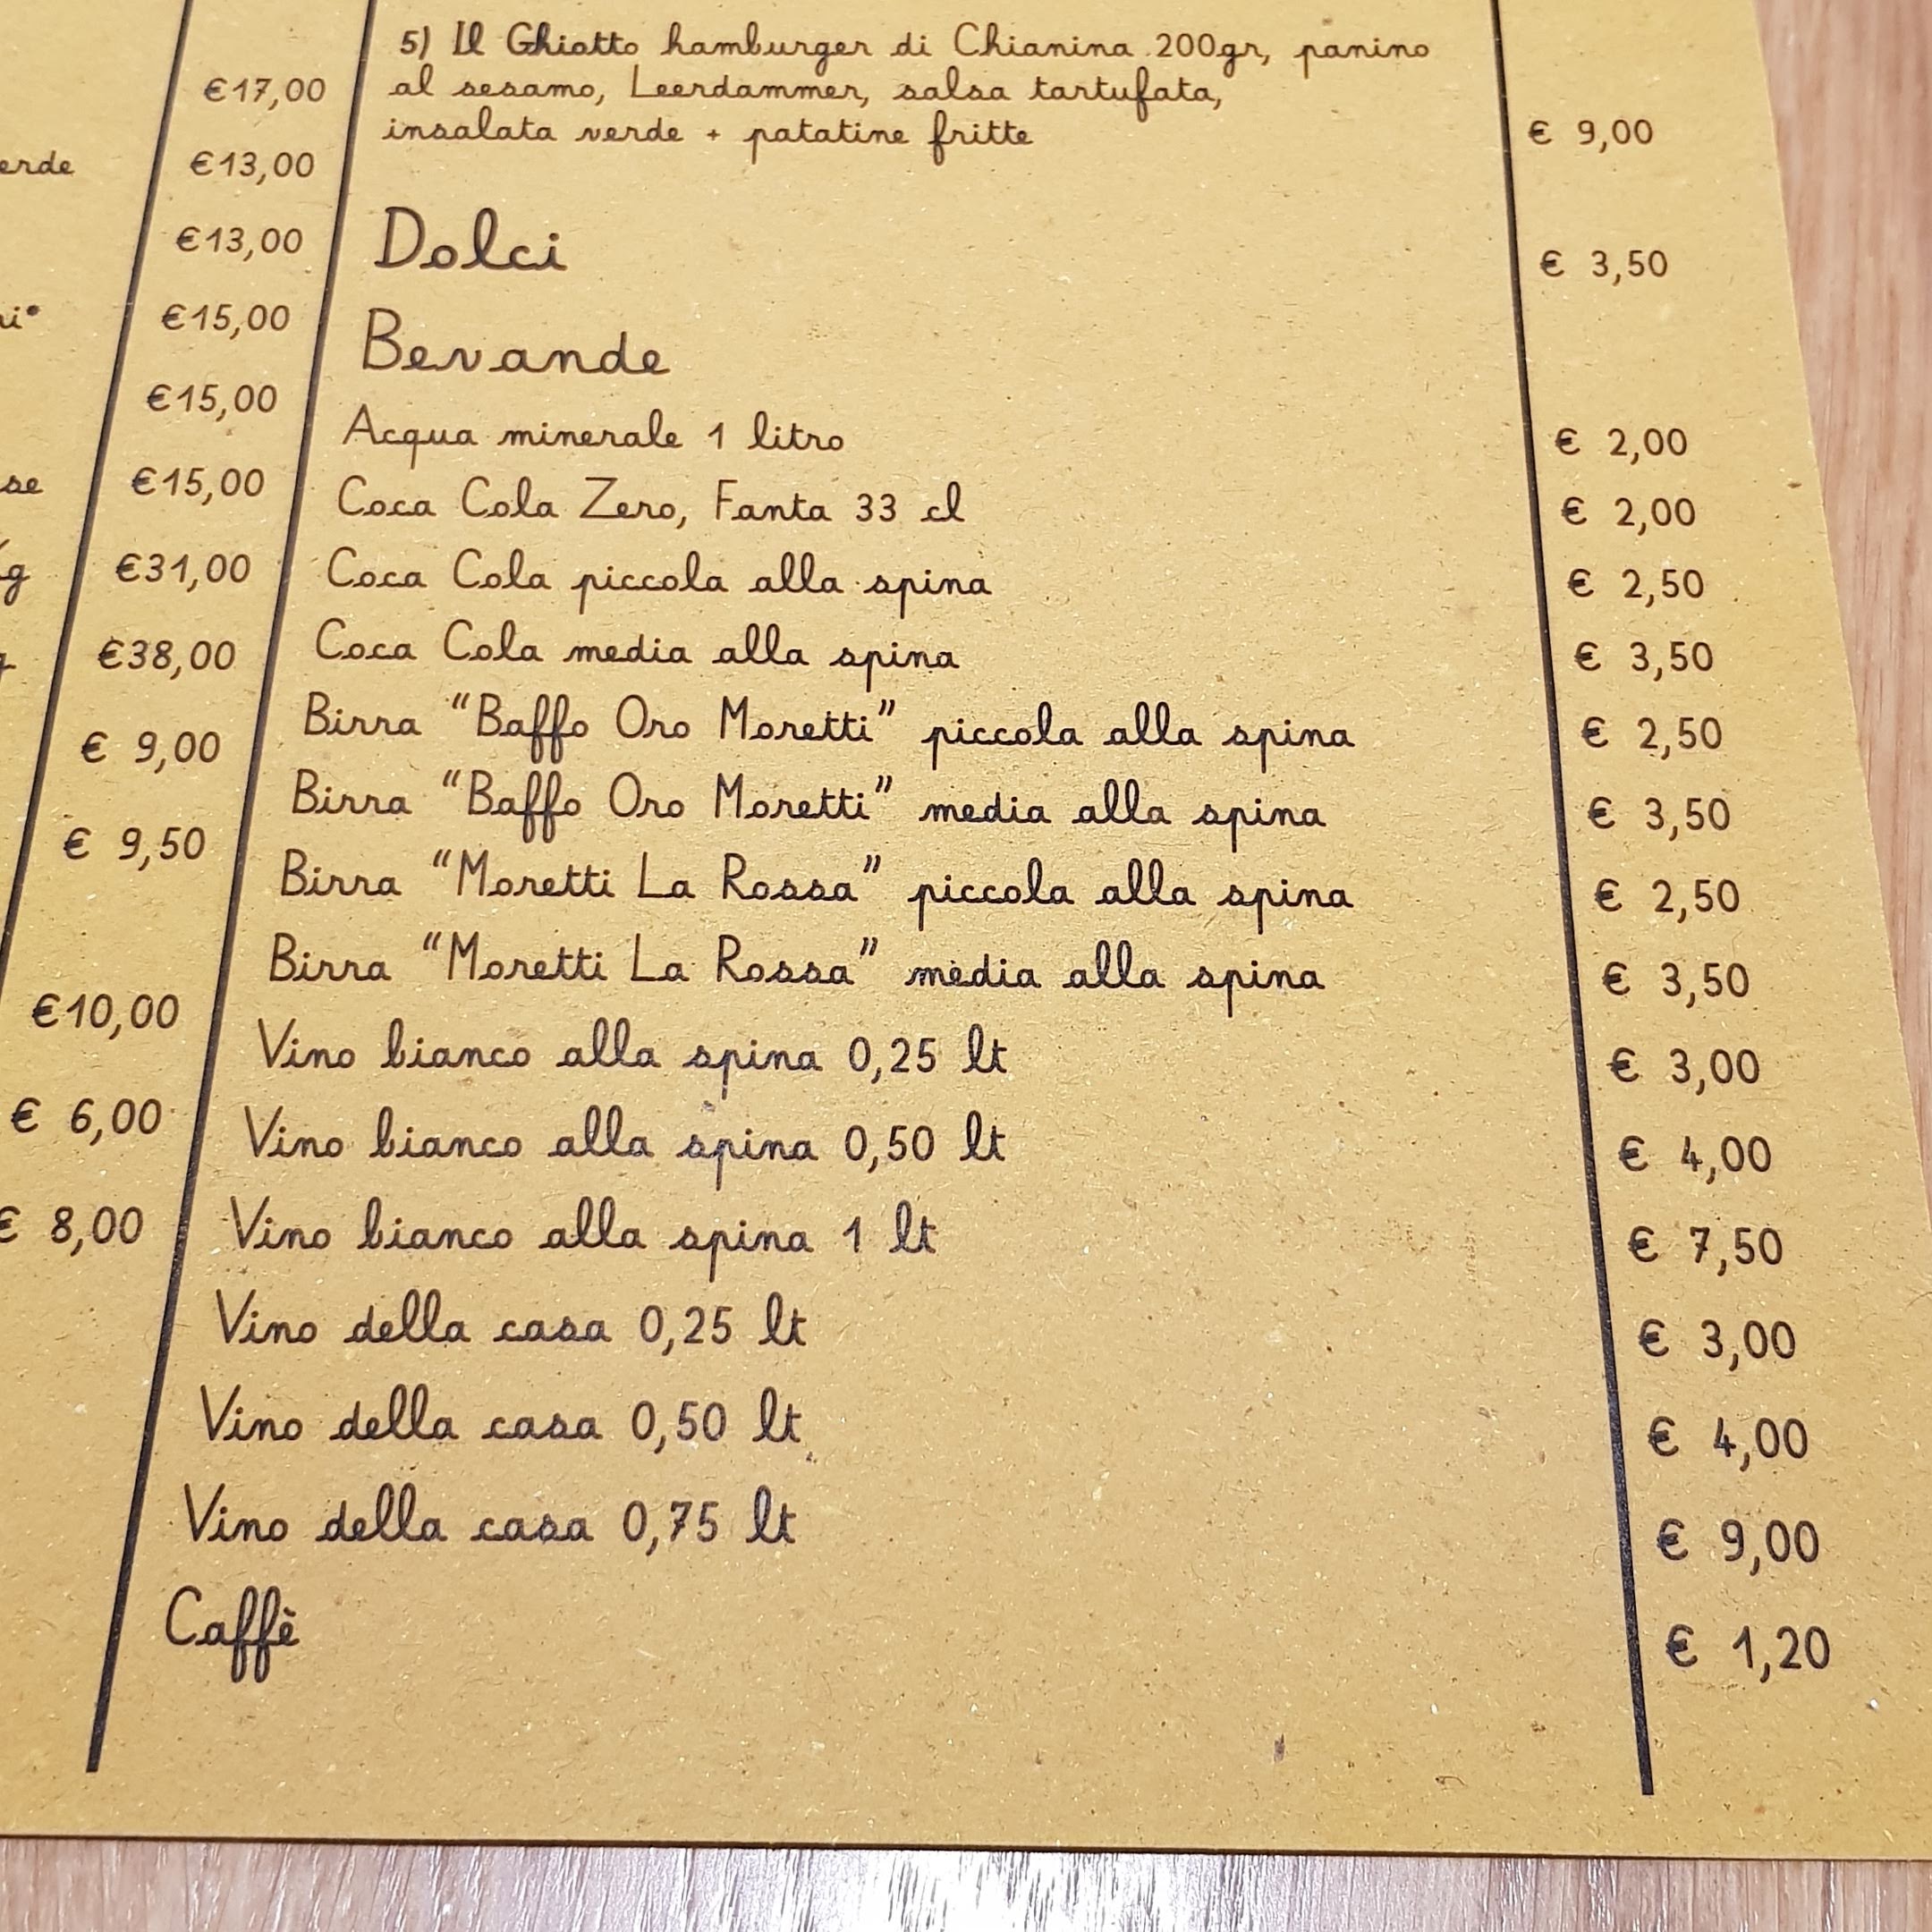 €17,00
erde €13,00
€13,00
€15,00
€15,00
€15,00
€31,00
€38,00
€ 9,00
€ 9,50
€10,00
€ 6,00
€ 8,00
5) Il Ghiotto hamburger di Chianina 200gr, panino
al sesamo, Leerdammer, salsa tartufata,
insalata verde + patatine fritte € 9,00
Dolci € 3,50
Bevande
Acqua minerale 1 litro € 2,00
Coca Cola Zero, Fanta 33 cl € 2,00
Coca Cola piccola alla spina € 2,50
Coca Cola media alla spina € 3,50
Birra “Baffo Oro Moretti” piccola alla spina € 2,50
Birra “Baffo Oro Moretti” media alla spina € 3,50
Birra “Moretti La Rossa” piccola alla spina € 2,50
Birra “Moretti La Rossa” media alla spina € 3,50
Vino bianco alla spina 0,25 lt € 3,00
Vino bianco alla spina 0,50 lt € 4,00
Vino bianco alla spina 1 lt € 7,50
Vino della casa 0,25 lt € 3,00
Vino della casa 0,50 lt € 4,00
Vino della casa 0,75 lt € 9,00
Caffè € 1,20